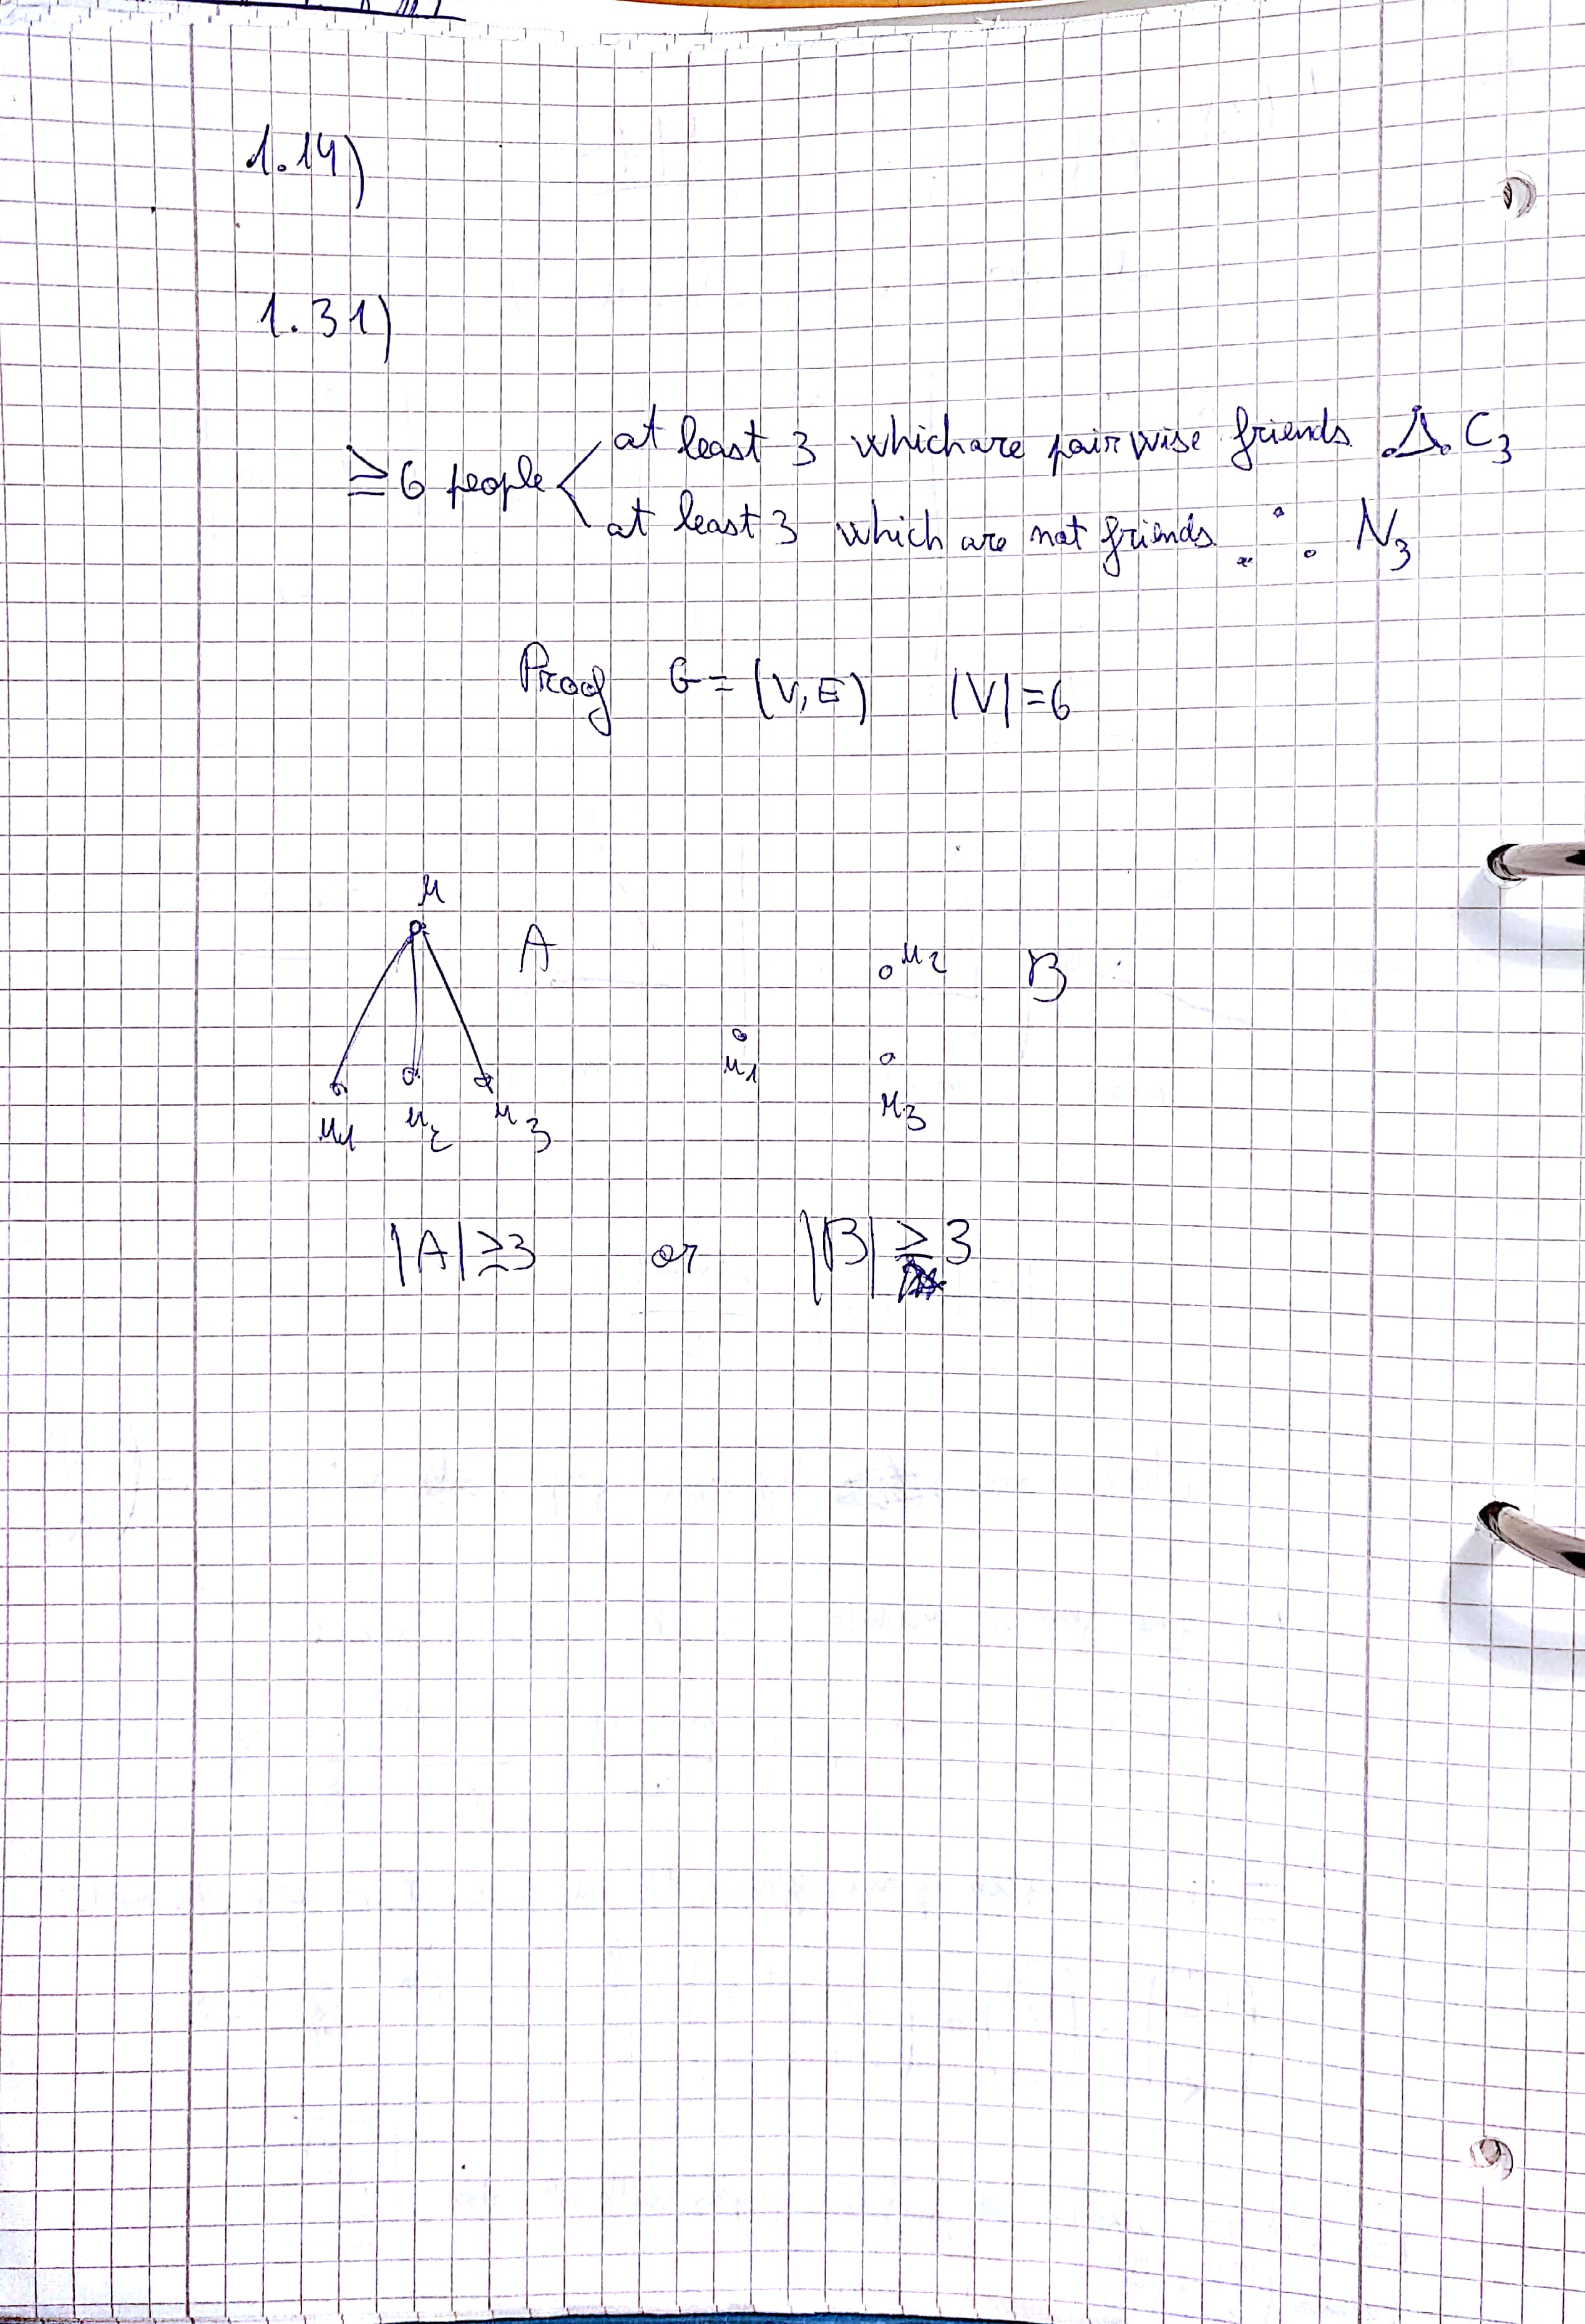 1.14)
1.31)
≥6 people
at least 3 which are pairwise friends C3
at least 3 which are not friends N3
Proof G=(V,E) |V|=6
u
A
u2 B
u1
u3
u1 u2 u3
|A|≥3 or |B|≥3